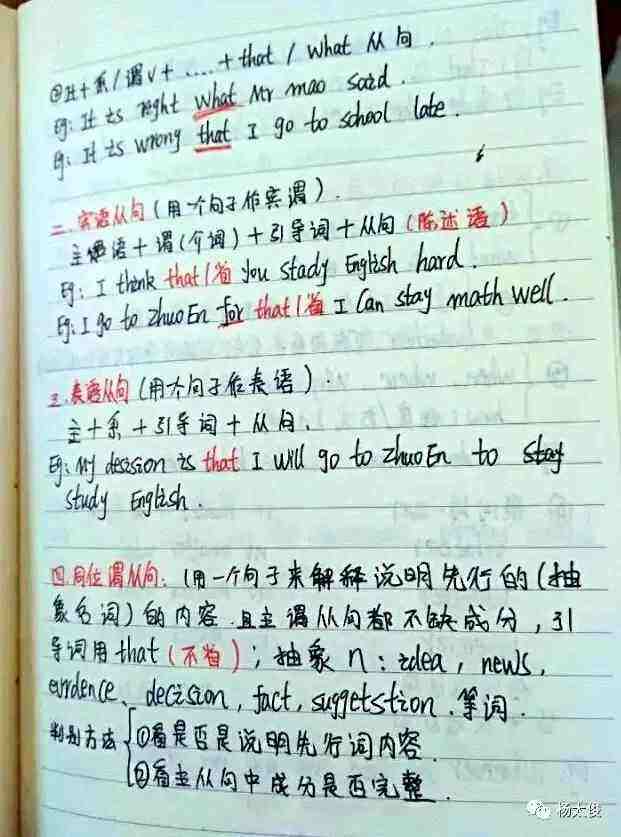 ②It+系/谓v+....+that/what 从句.
Eg: It is right what Mr mao said.
Eg: It is wrong that I go to school late.
二.宾语从句(用一个句子作宾谓).
主语+谓(介词)+引导词+从句(陈述语)
Eg: I think that/省 you stady English hard.
Eg: I go to zhuoEn for that/省 I can stay math well.
三.表语从句(用个句子作表语).
主+系+引导词+从句.
Eg: My decision is that I will go to zhuoEn to stay
study English.
四.同位谓从句:(用一个句子来解释说明先行的(抽
象名词)的内容.且主谓从句都不缺成分,引
导词用that(不省);抽象n:idea,news,
evidence、decision,fact,suggetstion.等词.
判别方法
①看是否是说明先行词内容.
②看主从句中成分是否完整.
杨文俊